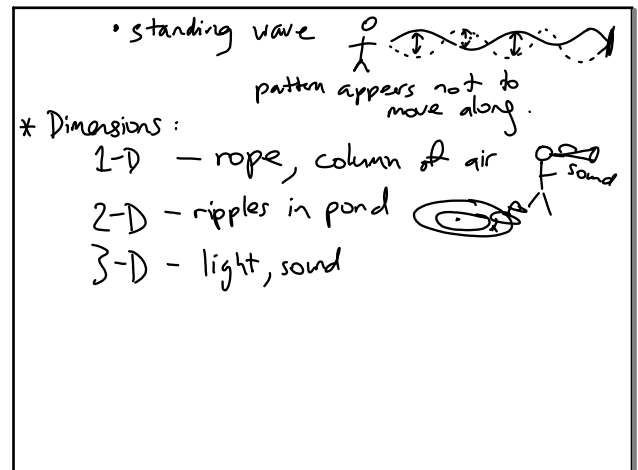 • standing wave
pattern appears not to
move along.
* Dimensions :
1-D — rope, column of air
sound
2-D - ripples in pond
3-D - light, sound